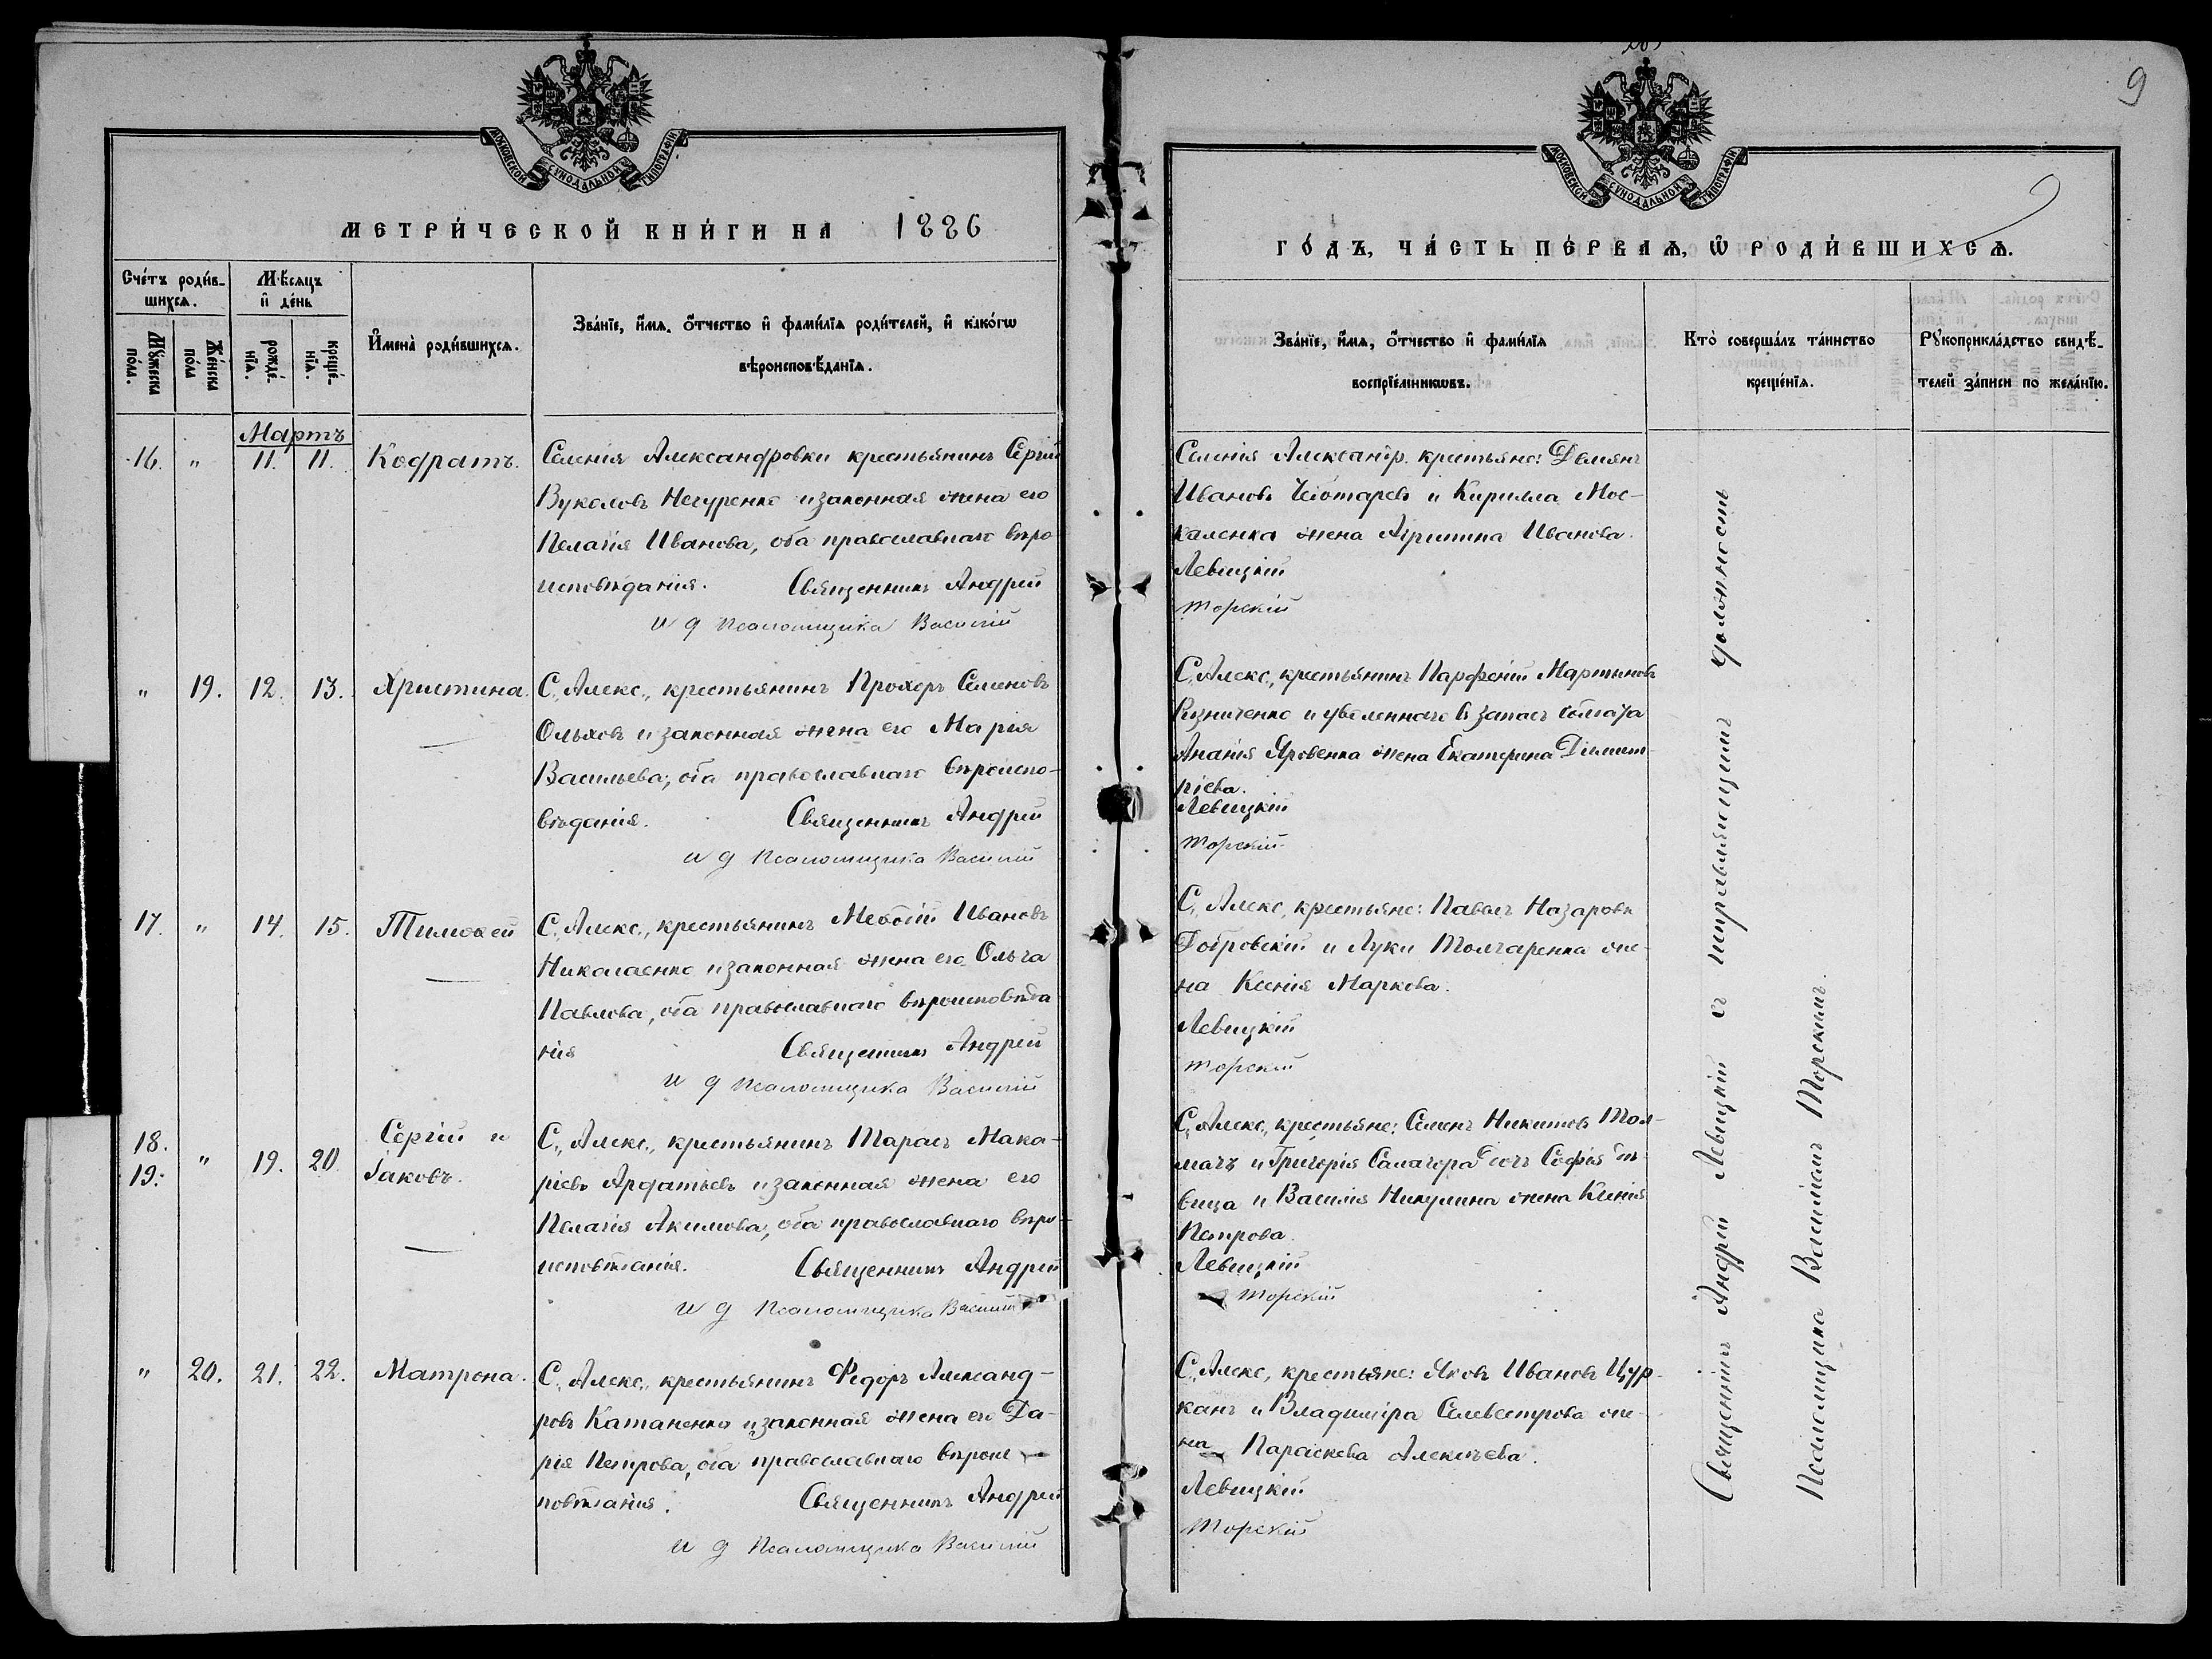 9
МОСКОВСКОЙ СѴНОДАЛЬНОЙ ТИПОГРАФІИ
МЕТРИ́ЧЕСКОЙ КНИ́ГИ НА 1886
Сче́тъ роди́в-
шихсѧ.
Мѣ́сѧцъ
и҆ де́нь
Мꙋ́жеска
по́ла.
Же́нска
по́ла
рожде́-
нїѧ.
креще́-
нїѧ.
И҆мена̀ роди́вшихсѧ.
Зва́нїе, и҆́мѧ, ѻ҆́тчество и҆ фами́лїѧ роди́телей, и҆ како́гѡ
вѣроисповѣ́данїѧ.
Мартъ
16. " 11. 11. Кодратъ. Селенія Александровки крестьянинъ Сергій
Вуколовъ Нечуренко и законная жена его
Пелагія Иванова, оба православнаго вѣро
исповѣданія. Священникъ Андрей
и д псаломщика Василій
" 19. 12. 13. Христина. С. Алекс., крестьянинъ Прохоръ Семеновъ
Ольховъ и законная жена его Марія
Васильева, оба православнаго вѣроиспо-
вѣданія. Священникъ Андрей
и д псаломщика Василій
17. " 14. 15. Тимоѳей С. Алекс., крестьянинъ Меѳодій Ивановъ
Николаенко и законная жена его Ольга
Павлова, оба православнаго вѣроисповѣда
нія Священникъ Андрей
и д псаломщика Василій
18.
19. " 19. 20. Сергій и
Іаковъ. С. Алекс., крестьянинъ Тарасъ Мака-
ріевъ Арфатьевъ и законная жена его
Пелагія Акимова, оба православнаго вѣро-
исповѣданія. Священникъ Андрей
и д псаломщика Василій
" 20. 21. 22. Матрона. С. Алекс., крестьянинъ Федоръ Александ-
ровъ Катаненко и законная жена его Да-
рія Петрова, оба православнаго вѣроис
повѣданія. Священникъ Андрей
и д псаломщика Василій
МОСКОВСКОЙ СѴНОДАЛЬНОЙ ТИПОГРАФІИ
ГО́ДЪ, ЧА́СТЬ ПЕ́РВАѦ, Ѡ҆ РОДИ́ВШИХСѦ.
Зва́нїе, и҆́мѧ, ѻ҆́тчество и҆ фами́лїѧ
воспрїе́мникѡвъ.
Кто̀ соверша́лъ та́инство
креще́нїѧ.
Рꙋкоприкла́дство свидѣ́-
телей за́писи по жела́нїю.
Селенія Александр. крестьяне: Демянъ
Ивановъ Чеботаревъ и Кирилла Мос-
каленка жена Агрипина Иванова.
Левицкій
Торскій
С. Алекс., крестьянинъ Парфеній Мартыновъ
Резниченко и уволеннаго в запасъ солдата
Ананія Яровенка жена Екатерина Димит-
ріева.
Левицкій
Торскій
С. Алекс., крестьяне: Павелъ Назаровъ
Добровскій и Луки Толчаренка же-
на Ксенія Маркова.
Левицкій
Торскій
С. Алекс., крестьяне: Семенъ Никитовъ Тол-
мачъ и Григорія Саланора дочь Софія дѣ-
вица и Василія Никулина жена Ксенія
Петрова.
Левицкій
Торскій
С. Алекс., крестьяне: Яковъ Ивановъ Цур-
канъ и Владиміра Селевестрова же-
на Параскева Алексѣева.
Левицкій
Торскій
Священникъ Андрей Левицкій съ исправляющимъ должность
Псаломщика Василіемъ Торскимъ.